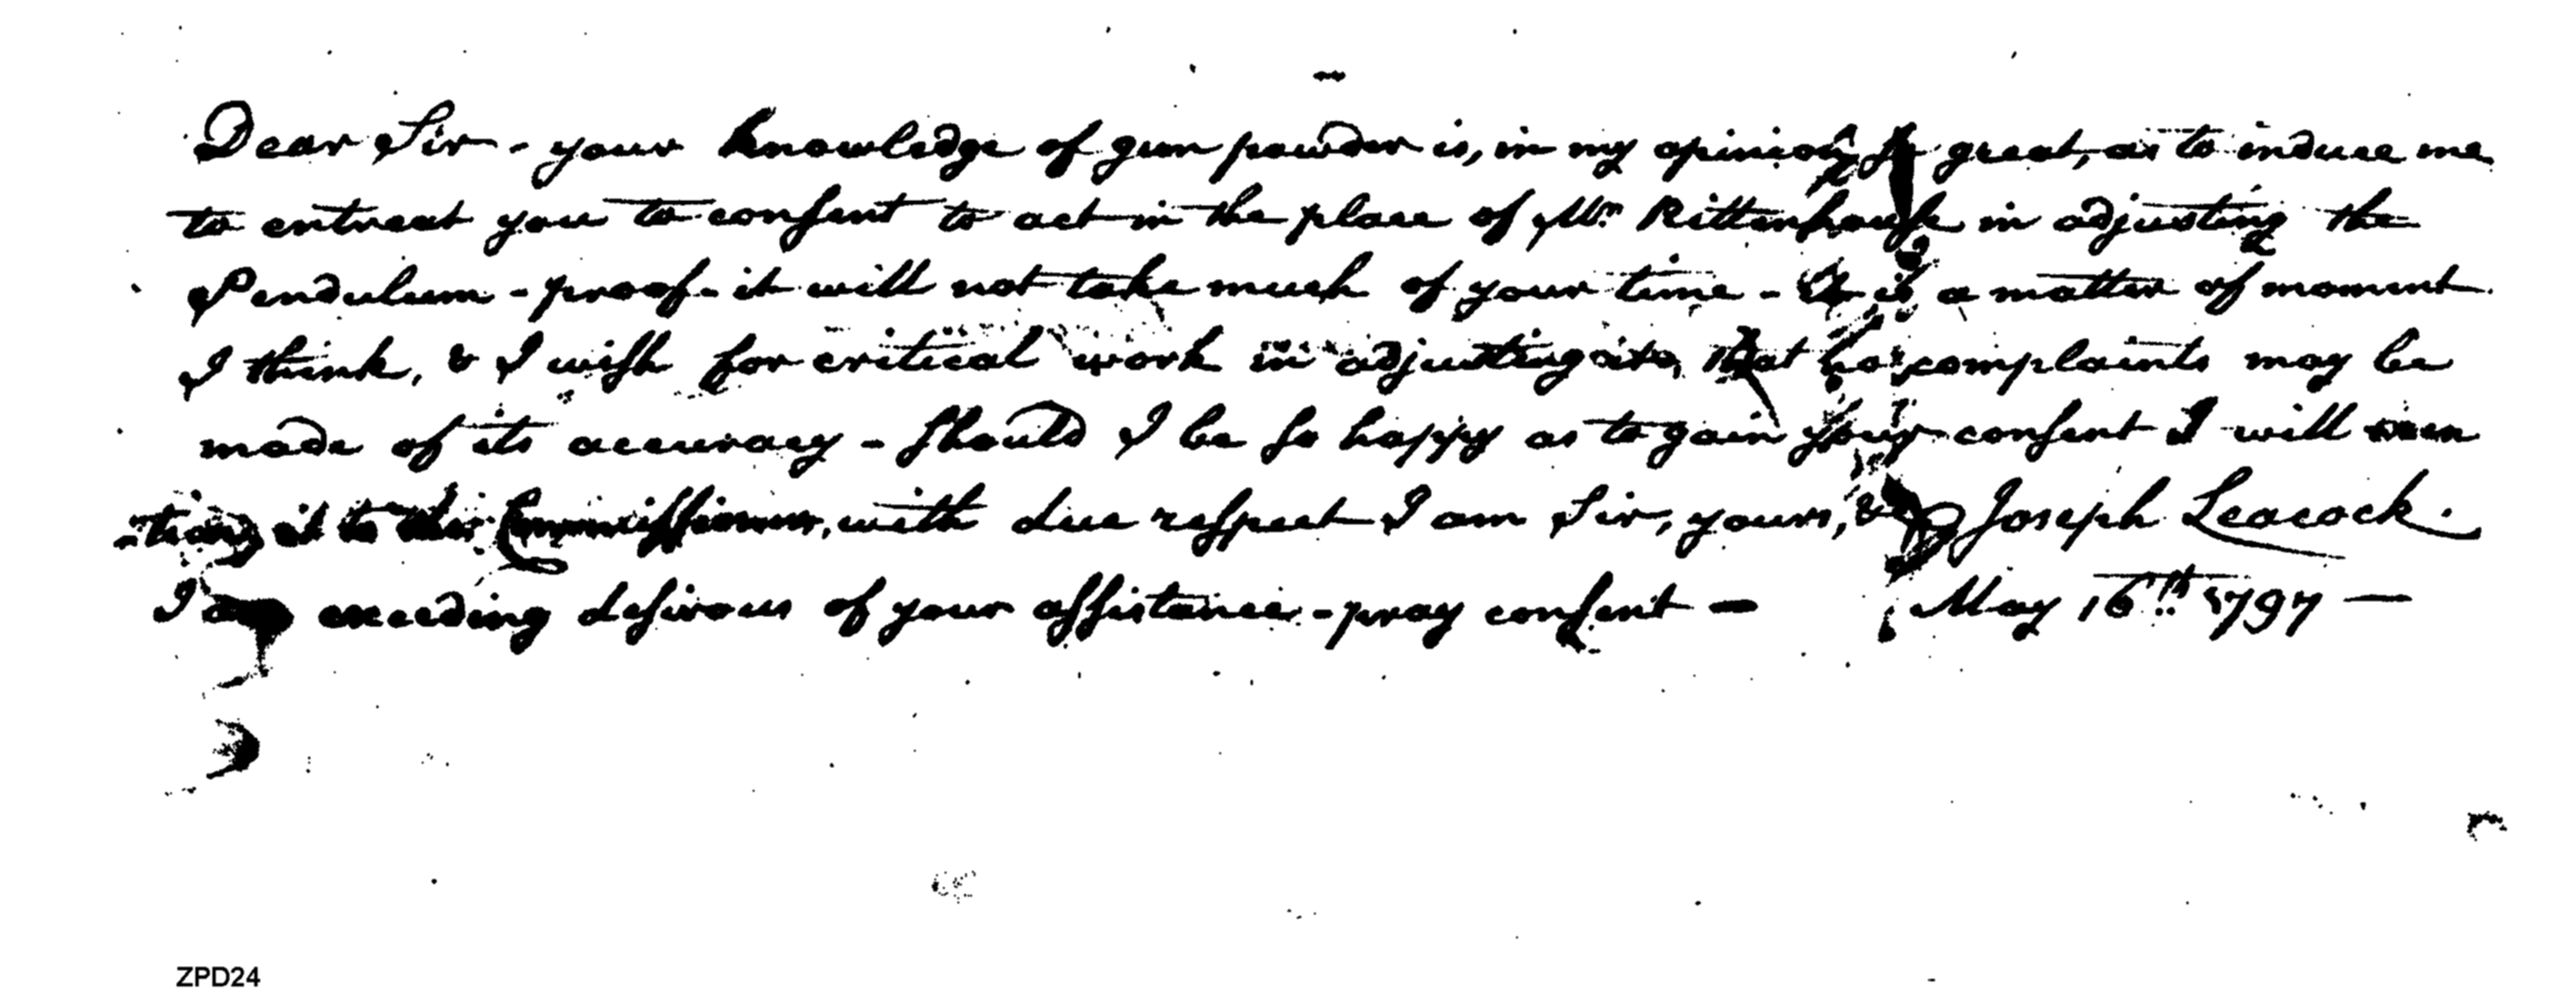 Dear Sir - your knowledge of gun powder is, in my opinion, so great, as to induce me
to entreat you to consent to act in the place of Mr. Rittenhouse in adjusting the
Pendulum - proof - it will not take much of your time - It is a matter of moment
I think, & I wish for critical work in adjusting it, that no complaints may be
made of its accuracy - Should I be so happy as to gain your consent I will men
-tion it to the Commissioners, with due respect I am Sir, yours, &c Joseph Leacock.
I am exceeding desirous of your assistance - pray consent - May 16th 1797 -
ZPD24